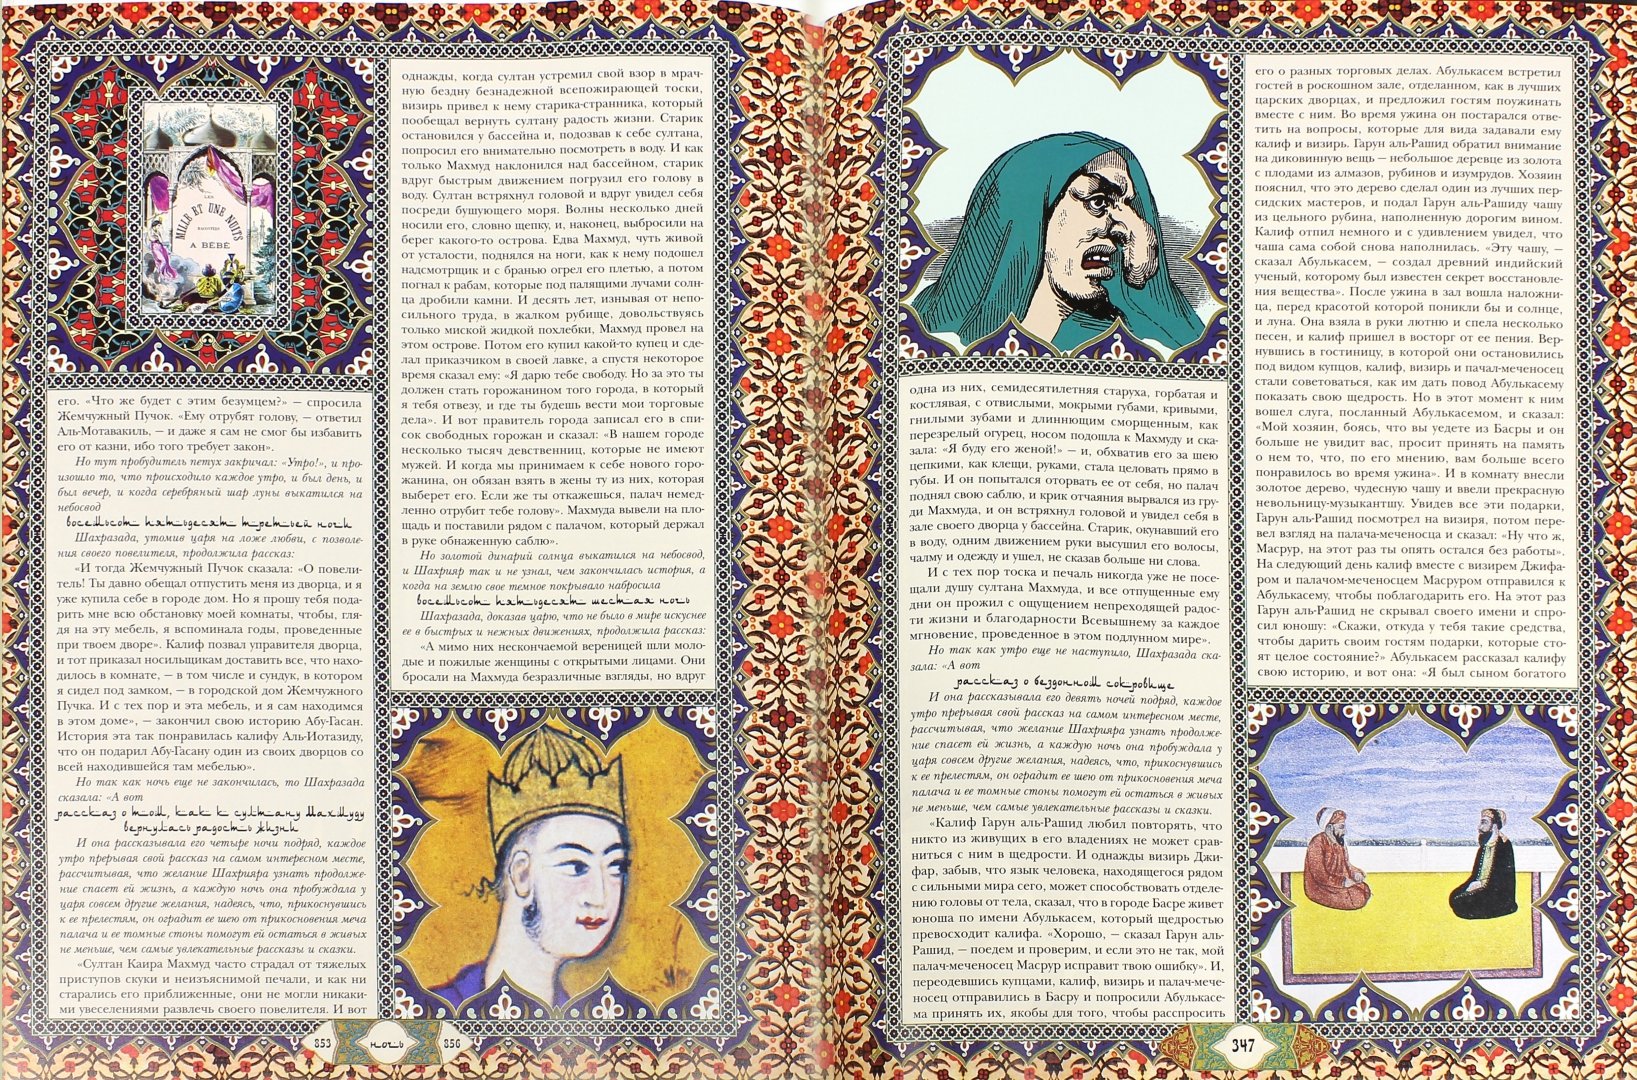 LES
MILLE ET UNE NUITS
RACONTÉES
A BÉBÉ
его. «Что же будет с этим безумцем?» — спросила
Жемчужный Пучок. «Ему отрубят голову, — ответил
Аль-Мотавакиль, — и даже я сам не смог бы избавить
его от казни, ибо того требует закон».
Но тут пробудитель петух закричал: «Утро!», и про-
изошло то, что происходило каждое утро, и был день, и
был вечер, и когда серебряный шар луны выкатился на
небосвод
восемьсот пятьдесят третьей ночи
Шахразада, утомив царя на ложе любви, с позволе-
ния своего повелителя, продолжила рассказ:
«И тогда Жемчужный Пучок сказала: «О повели-
тель! Ты давно обещал отпустить меня из дворца, и я
уже купила себе в городе дом. Но я прошу тебя пода-
рить мне всю обстановку моей комнаты, чтобы, гля-
дя на эту мебель, я вспоминала годы, проведенные
при твоем дворе». Калиф позвал управителя дворца,
и тот приказал носильщикам доставить все, что нахо-
дилось в комнате, — в том числе и сундук, в котором
я сидел под замком, — в городской дом Жемчужного
Пучка. И с тех пор и эта мебель, и я сам находимся
в этом доме», — закончил свою историю Абу-Гасан.
История эта так понравилась калифу Аль-Иотазиду,
что он подарил Абу-Гасану один из своих дворцов со
всей находившейся там мебелью».
Но так как ночь еще не закончилась, то Шахразада
сказала: «А вот
рассказ о том, как к султану Махмуду
вернулась радость жизни
И она рассказывала его четыре ночи подряд, каждое
утро прерывая свой рассказ на самом интересном месте,
рассчитывая, что желание Шахрияра узнать продолже-
ние спасет ей жизнь, а каждую ночь она пробуждала у
царя совсем другие желания, надеясь, что, прикоснувшись
к ее прелестям, он оградит ее шею от прикосновения меча
палача и ее томные стоны помогут ей остаться в живых
не меньше, чем самые увлекательные рассказы и сказки.
«Султан Каира Махмуд часто страдал от тяжелых
приступов скуки и неизъяснимой печали, и как ни
старались его приближенные, они не могли никаки-
ми увеселениями развлечь своего повелителя. И вот
однажды, когда султан устремил свой взор в мрач-
ную бездну безнадежной всепожирающей тоски,
визирь привел к нему старика-странника, который
пообещал вернуть султану радость жизни. Старик
остановился у бассейна и, подозвав к себе султана,
попросил его внимательно посмотреть в воду. И как
только Махмуд наклонился над бассейном, старик
вдруг быстрым движением погрузил его голову в
воду. Султан встряхнул головой и вдруг увидел себя
посреди бушующего моря. Волны несколько дней
носили его, словно щепку, и, наконец, выбросили на
берег какого-то острова. Едва Махмуд, чуть живой
от усталости, поднялся на ноги, как к нему подошел
надсмотрщик и с бранью огрел его плетью, а потом
погнал к рабам, которые под палящими лучами солн-
ца дробили камни. И десять лет, изнывая от непо-
сильного труда, в жалком рубище, довольствуясь
только миской жидкой похлебки, Махмуд провел на
этом острове. Потом его купил какой-то купец и сде-
лал приказчиком в своей лавке, а спустя некоторое
время сказал ему: «Я дарю тебе свободу. Но за это ты
должен стать горожанином того города, в который
я тебя отвезу, и где ты будешь вести мои торговые
дела». И вот правитель города записал его в спи-
сок свободных горожан и сказал: «В нашем городе
несколько тысяч девственниц, которые не имеют
мужей. И когда мы принимаем к себе нового горо-
жанина, он обязан взять в жены ту из них, которая
выберет его. Если же ты откажешься, палач немед-
ленно отрубит тебе голову». Махмуда вывели на пло-
щадь и поставили рядом с палачом, который держал
в руке обнаженную саблю».
Но золотой динарий солнца выкатился на небосвод,
и Шахрияр так и не узнал, чем закончилась история, а
когда на землю свое темное покрывало набросила
восемьсот пятьдесят шестая ночь
Шахразада, доказав царю, что не было в мире искуснее
ее в быстрых и нежных движениях, продолжила рассказ:
«А мимо них нескончаемой вереницей шли моло-
дые и пожилые женщины с открытыми лицами. Они
бросали на Махмуда безразличные взгляды, но вдруг
853 ночь 856
одна из них, семидесятилетняя старуха, горбатая и
костлявая, с отвислыми, мокрыми губами, кривыми,
гнилыми зубами и длиннющим сморщенным, как
перезрелый огурец, носом подошла к Махмуду и ска-
зала: «Я буду его женой!» — и, обхватив его за шею
цепкими, как клещи, руками, стала целовать прямо в
губы. И он попытался оторвать ее от себя, но палач
поднял свою саблю, и крик отчаяния вырвался из гру-
ди Махмуда, и он встряхнул головой и увидел себя в
зале своего дворца у бассейна. Старик, окунавший его
в воду, одним движением руки высушил его волосы,
чалму и одежду и ушел, не сказав больше ни слова.
И с тех пор тоска и печаль никогда уже не посе-
щали душу султана Махмуда, и все отпущенные ему
дни он прожил с ощущением непреходящей радос-
ти жизни и благодарности Всевышнему за каждое
мгновение, проведенное в этом подлунном мире».
Но так как утро еще не наступило, Шахразада ска-
зала: «А вот
рассказ о бездонном сокровище
И она рассказывала его девять ночей подряд, каждое
утро прерывая свой рассказ на самом интересном месте,
рассчитывая, что желание Шахрияра узнать продолже-
ние спасет ей жизнь, а каждую ночь она пробуждала у
царя совсем другие желания, надеясь, что, прикоснувшись
к ее прелестям, он оградит ее шею от прикосновения меча
палача и ее томные стоны помогут ей остаться в живых
не меньше, чем самые увлекательные рассказы и сказки.
«Калиф Гарун аль-Рашид любил повторять, что
никто из живущих в его владениях не может срав-
ниться с ним в щедрости. И однажды визирь Джи-
фар, забыв, что язык человека, находящегося рядом
с сильными мира сего, может способствовать отделе-
нию головы от тела, сказал, что в городе Басре живет
юноша по имени Абулькасем, который щедростью
превосходит калифа. «Хорошо, — сказал Гарун аль-
Рашид, — поедем и проверим, и если это не так, мой
палач-меченосец Масрур исправит твою ошибку». И,
переодевшись купцами, калиф, визирь и палач-мече-
носец отправились в Басру и попросили Абулькасе-
ма принять их, якобы для того, чтобы расспросить
его о разных торговых делах. Абулькасем встретил
гостей в роскошном зале, отделанном, как в лучших
царских дворцах, и предложил гостям поужинать
вместе с ним. Во время ужина он постарался отве-
тить на вопросы, которые для вида задавали ему
калиф и визирь. Гарун аль-Рашид обратил внимание
на диковинную вещь — небольшое деревце из золота
с плодами из алмазов, рубинов и изумрудов. Хозяин
пояснил, что это дерево сделал один из лучших пер-
сидских мастеров, и подал Гарун аль-Рашиду чашу
из цельного рубина, наполненную дорогим вином.
Калиф отпил немного и с удивлением увидел, что
чаша сама собой снова наполнилась. «Эту чашу, —
сказал Абулькасем, — создал древний индийский
ученый, которому был известен секрет восстановле-
ния вещества». После ужина в зал вошла наложни-
ца, перед красотой которой поникли бы и солнце,
и луна. Она взяла в руки лютню и спела несколько
песен, и калиф пришел в восторг от ее пения. Вер-
нувшись в гостиницу, в которой они остановились
под видом купцов, калиф, визирь и пачал-меченосец
стали советоваться, как им дать повод Абулькасему
показать свою щедрость. Но в этот момент к ним
вошел слуга, посланный Абулькасемом, и сказал:
«Мой хозяин, боясь, что вы уедете из Басры и он
больше не увидит вас, просит принять на память
о нем то, что, по его мнению, вам больше всего
понравилось во время ужина». И в комнату внесли
золотое дерево, чудесную чашу и ввели прекрасную
невольницу-музыкантшу. Увидев все эти подарки,
Гарун аль-Рашид посмотрел на визиря, потом пере-
вел взгляд на палача-меченосца и сказал: «Ну что ж,
Масрур, на этот раз ты опять остался без работы».
На следующий день калиф вместе с визирем Джифа-
ром и палачом-меченосцем Масруром отправился к
Абулькасему, чтобы поблагодарить его. На этот раз
Гарун аль-Рашид не скрывал своего имени и спро-
сил юношу: «Скажи, откуда у тебя такие средства,
чтобы дарить своим гостям подарки, которые сто-
ят целое состояние?» Абулькасем рассказал калифу
свою историю, и вот она: «Я был сыном богатого
347